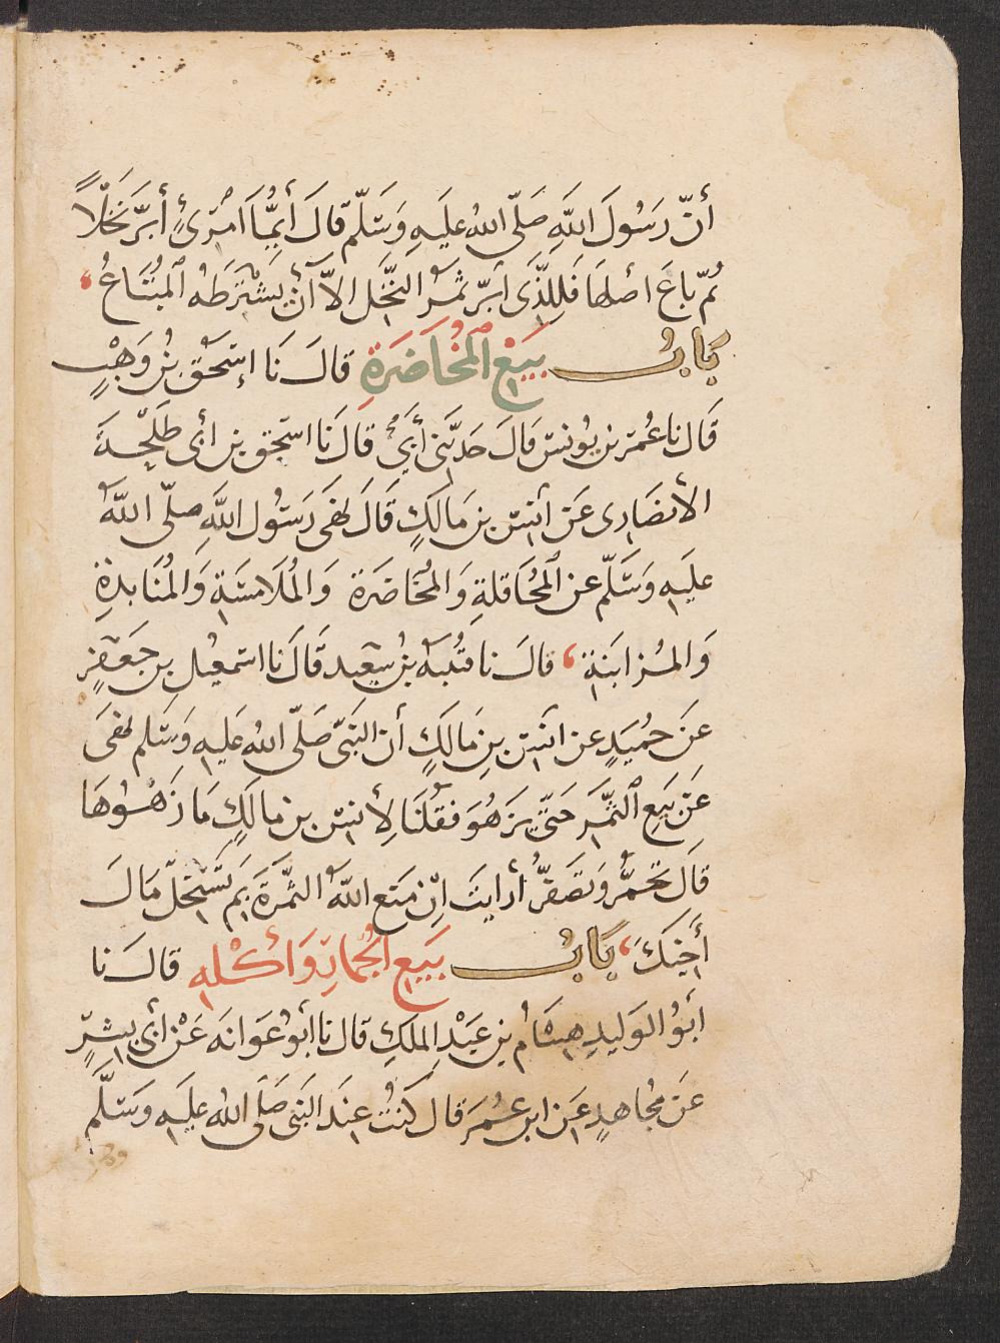 أنّ رَسُولَ اللَّهِ صَلّى اللهُ عليَهِ وَسَلّم قالَ أَيُّمَا امْرِئٍ أَبَّرَ نَخْلًا
ثُمّ بَاعَ اصلَهَا فَلِلّذَى أبّر ثمَرُ النَّخَلِ الاّ أنْ يشْتَرِطَهُ اَلمُبْتَاعُ
بَابُ بَيَعْ اَلمُخَاضَرَةِ قالَ نَا إسْحَقُ بنُ وَهْبٍ
قَالَ نا عُمَر بن يُونسَ قالَ حَدثّنى أبَى قالَ نَا اسْحَق بن أبى طَلحَةَ
الأنصَارِى عَن أنَسَ بنِ مَالكٍ قَالَ نهَى رَسُول اللَّهِ صلّى اللَّهُ
عليَهِ وَسَلّم عن اَلمُحَاقلةِ وَالمُخَاضَرَة وَالمُلَامسَةِ وَالمُنَابذةِ
وَالمُزابَنَةِ قالَ نا قتُيبَه بنُ سعِيد قَالَ نَا اسمَعيلِ بن جَعَفرٍ
عَن حُميَدٍ عن انَسَ بنِ مَالكٍ أن النَبىَّ صَلّى اللهُ عَليَهِ وَسَلم نهَى
عَن بيَعِ الثمَّرِ حَتىّ يَزهُوَ فقُلنَا لِأنسَ بنِ مالكٍ مَا زَهْوُهَا
قَالَ تحَمرُّ وَتَصَفرُّ أرَايتَ إنِ مَنَعَ اللَّهُ الثمَّرَةَ بِمَ تَسْتَحِلّ مَالَ
أَخِيْكَ بَابُ بَيَعِ الجُمّارِ وَأَكْلهِ قالَ نا
أَبوُ الوَليدِ هِشَامُ بنِ عَبْدِ الملكِ قالَ نا أبوُ عَوانَه عَنْ أبى بشِرٍ
عَن مجُاهدٍ عَنِ ابنِ عُمَرَ قالَ كنُتُ عِنَدَ النَبىّ صَلّى اللهُ عليَهِ وسَلَّم